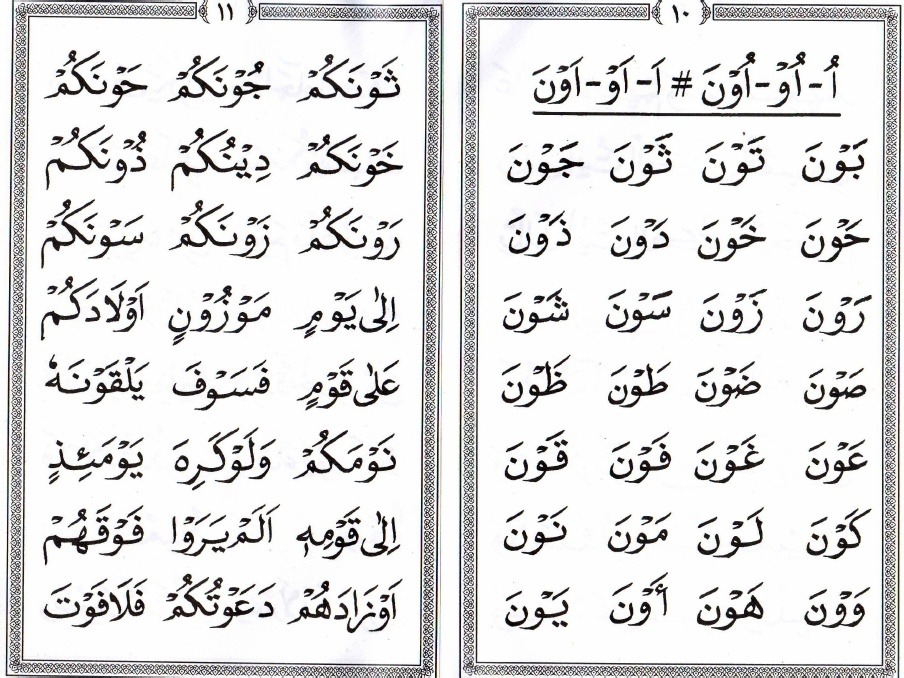 ١٠
اُ - اُوْ - اُوْنَ # اَ - اَوْ - اَوْنَ
بَوْنَ تَوْنَ ثَوْنَ جَوْنَ
حَوْنَ خَوْنَ دَوْنَ ذَوْنَ
رَوْنَ زَوْنَ سَوْنَ شَوْنَ
صَوْنَ ضَوْنَ طَوْنَ ظَوْنَ
عَوْنَ غَوْنَ فَوْنَ قَوْنَ
كَوْنَ لَوْنَ مَوْنَ نَوْنَ
وَوْنَ هَوْنَ أَوْنَ يَوْنَ
١١
ثَوْنَكُمْ جُوْنَكُمْ حَوْنَكُمْ
خَوْنَكُمْ دِيْنُكُمْ ذُوْنَكُمْ
رَوْنَكُمْ زَوْنَكُمْ سَوْنَكُمْ
اِلٰى يَوْمٍ مَوْزُوْنٍ اَوْلَادَكُمْ
عَلٰى قَوْمٍ فَسَوْفَ يَلْقَوْنَهٗ
نَوْمَكُمْ وَلَوْكَرِهَ يَوْمَئِذٍ
اِلٰى قَوْمِهٖ اَلَمْ يَرَوْا فَوْقَهُمْ
اَوْزَادَهُمْ دَعَوْتُكُمْ فَلَا فَوْتَ